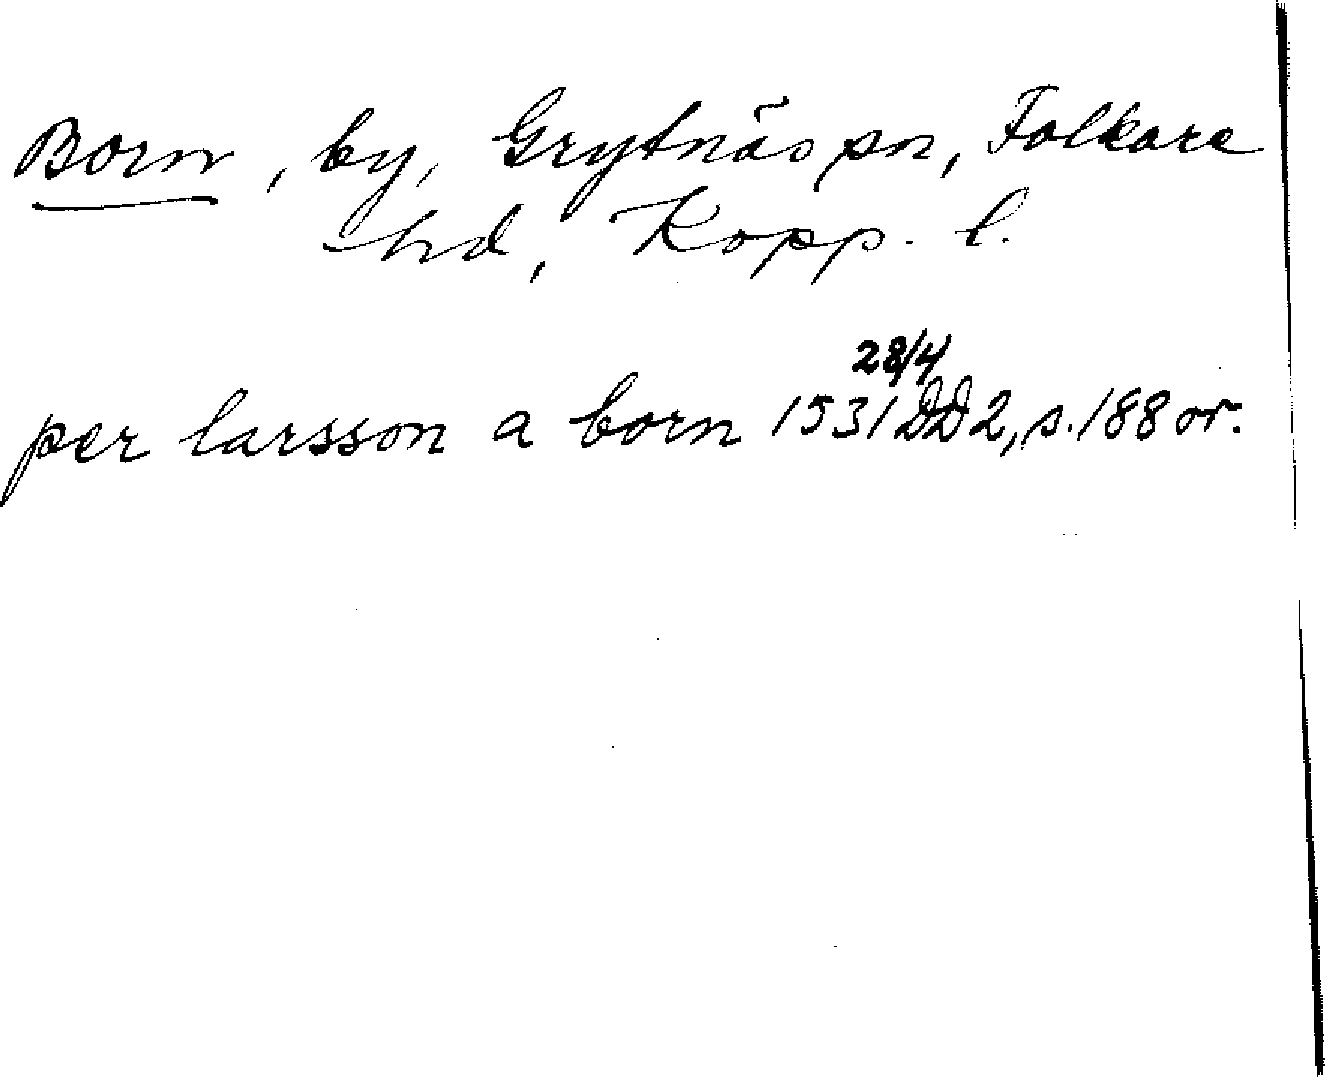 Born, by, Grytnäs sn, Folkare
hd, Kopp. l.
per larsson a born 1531 28/4 DD2, s. 188 or.